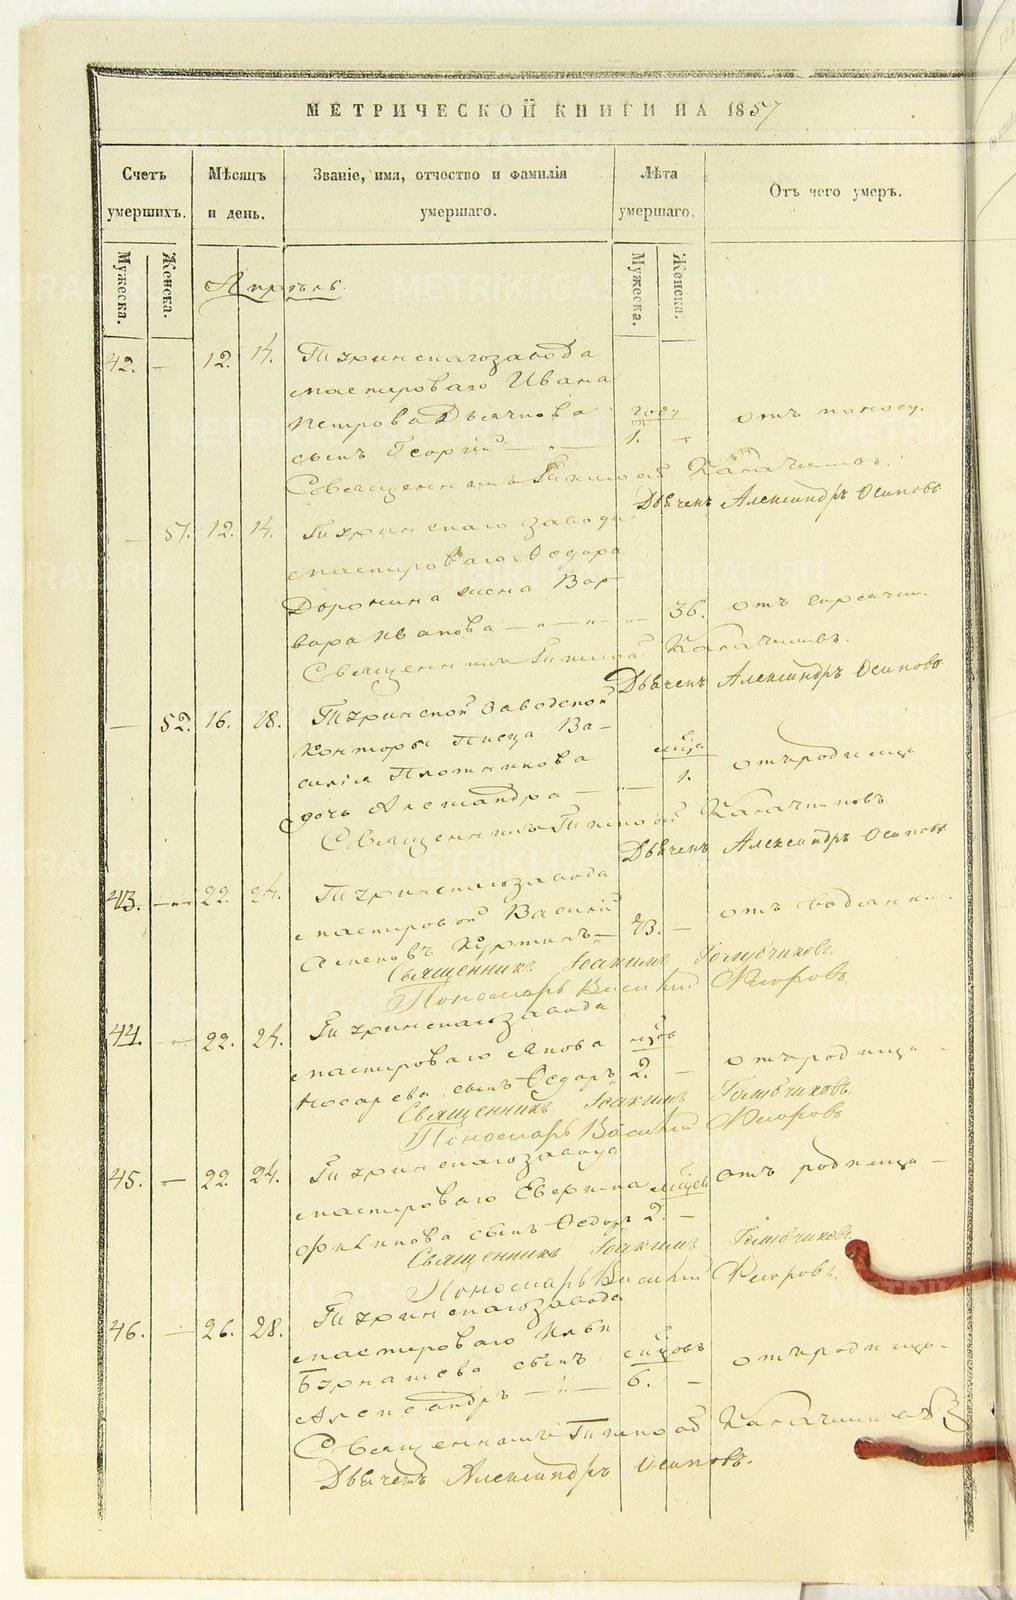 МЕТРИЧЕСКОЙ КНИГИ НА 1857
Счетъ умершихъ.
Мѣсяцъ и день.
Званіе, имя, отчество и фамилія умершаго.
Лѣта умершаго.
Отъ чего умеръ.
Мужеска.
Женска.
Мужеска.
Женска.
Апрѣль.
42. — 12. 14. Туринскаго завода
мастероваго Ивана
Петрова году отъ поносу.
сынъ Георгій — „ — 1. —
Священникъ
Дьячекъ Александръ Осиповъ
— 51. 12. 14. Туринскаго завода
мастероваго Ѳедора
Доронина жена Вар-
вара Иванова — „ — „ — „ 36. отъ горячки.
Священникъ
Дьячекъ Александръ Осиповъ
— 52. 16. 18. Туринской Заводской
Конторы Писца Ва-
силія Плотникова
дочь Александра — „ — 1. отъ родимца
Священникъ
Дьячекъ Александръ Осиповъ
43. — 22. 24. Туринскаго завода
мастеровой Василій
43. — отъ водянки.
Священникъ Іоакимъ Голубчиковъ.
Пономарь Василій Флоровъ.
44. — 22. 24. Туринскаго завода
мастероваго Якова
Косарева сынъ Ѳедоръ 2. — отъ родимца —
Священникъ Іоакимъ Голубчиковъ.
Пономарь Василій Флоровъ
45. — 22. 24. Туринскаго завода
мастероваго отъ родимца —
сынъ Ѳедоръ 2. —
Священникъ Іоакимъ Голубчиковъ.
Пономарь Василій Флоровъ.
46. — 26. 28. Туринскаго завода
мастероваго Ильи
Бурнашева сынъ отъ родимца —
Александръ — „ — 6. —
Священникъ
Дьячекъ Александръ Осиповъ.